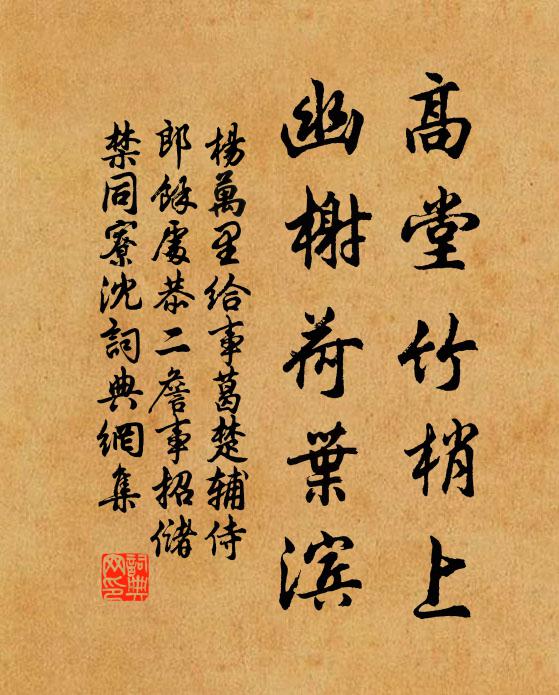 高堂竹梢上
幽榭荷葉滨
楊萬里给事葛楚輔侍
郎餘處恭二詹事招儲
禁同寮沈詞典網集
詞典网印